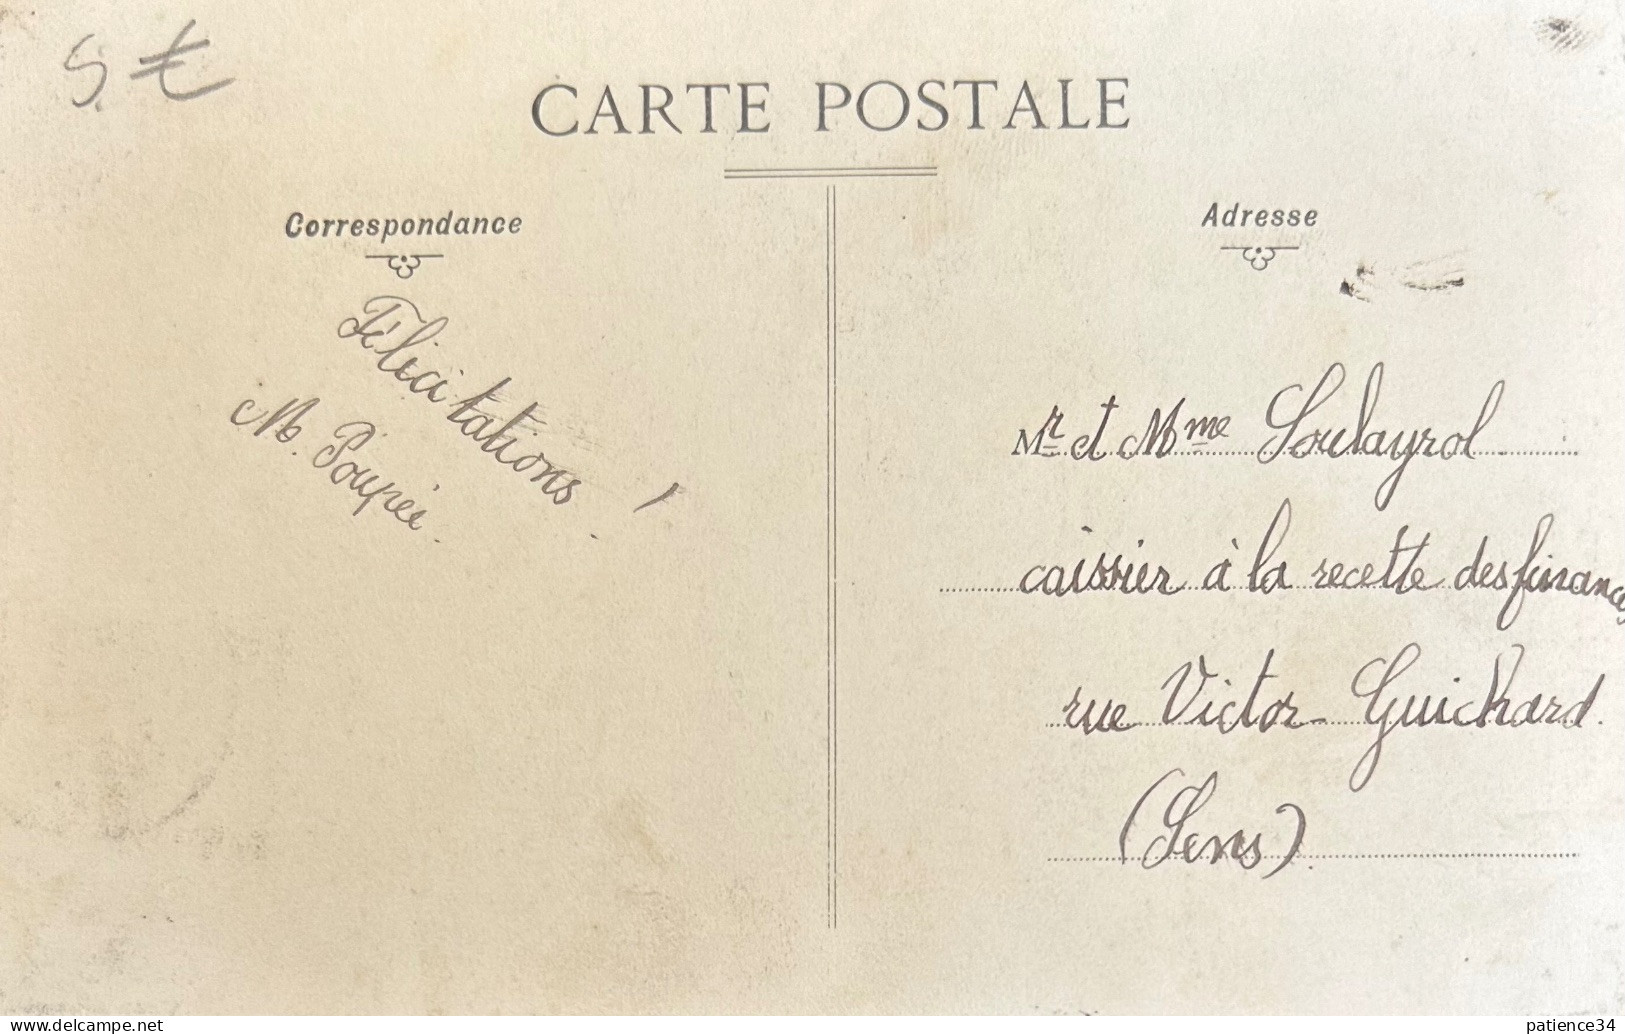 5 €
CARTE POSTALE
Correspondance
Félicitations !
M. Poupée.
Adresse
Mr et Mme Soulayrol
caissier à la recette des finances
rue Victor-Guichard.
(Sens).
www.delcampe.net
patience34